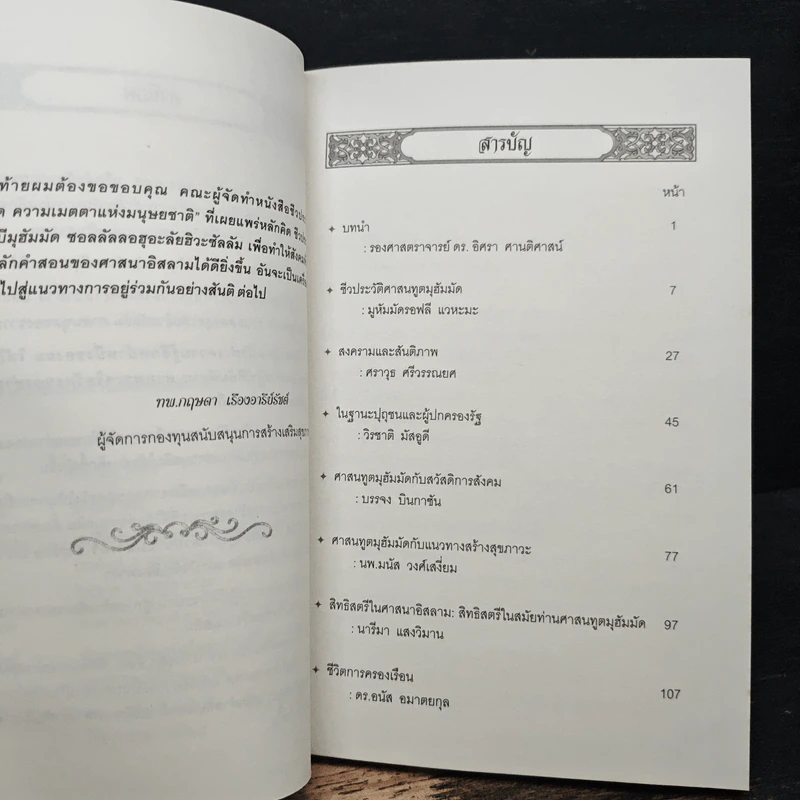 ท้ายผมต้องขอขอบคุณ คณะผู้จัดทำหนังสือชีวประ
ความเมตตาแห่งมนุษยชาติ" ที่เผยแพร่หลักคิด ชีวประ
บีมุฮัมมัด ซอลลัลลอฮุอะลัยฮิวะซัลลัม เพื่อทำให้สังคม
ลักคำสอนของศาสนาอิสลามได้ดียิ่งขึ้น อันจะเป็น
ไปสู่แนวทางการอยู่ร่วมกันอย่างสันติ ต่อไป
ทพ.กฤษดา เรืองอารีย์รัชต์
ผู้จัดการกองทุนสนับสนุนการสร้างเสริมสุขภา
สารบัญ
หน้า
บทนำ 1
: รองศาสตราจารย์ ดร. อิศรา ศานติศาสน์
ชีวประวัติศาสนทูตมุฮัมมัด 7
: มูหัมมัดรอฟลี แวหะมะ
สงครามและสันติภาพ 27
: ศราวุธ ศรีวรรณยศ
ในฐานะปุถุชนและผู้ปกครองรัฐ 45
: วิรชาติ มัสอูดี
ศาสนทูตมุฮัมมัดกับสวัสดิการสังคม 61
: บรรจง บินกาซัน
ศาสนทูตมุฮัมมัดกับแนวทางสร้างสุขภาวะ 77
: นพ.มนัส วงศ์เสงี่ยม
สิทธิสตรีในศาสนาอิสลาม: สิทธิสตรีในสมัยท่านศาสนทูตมุฮัมมัด 97
: นารีมา แสงวิมาน
ชีวิตการครองเรือน 107
: ดร.อนัส อมาตยกุล